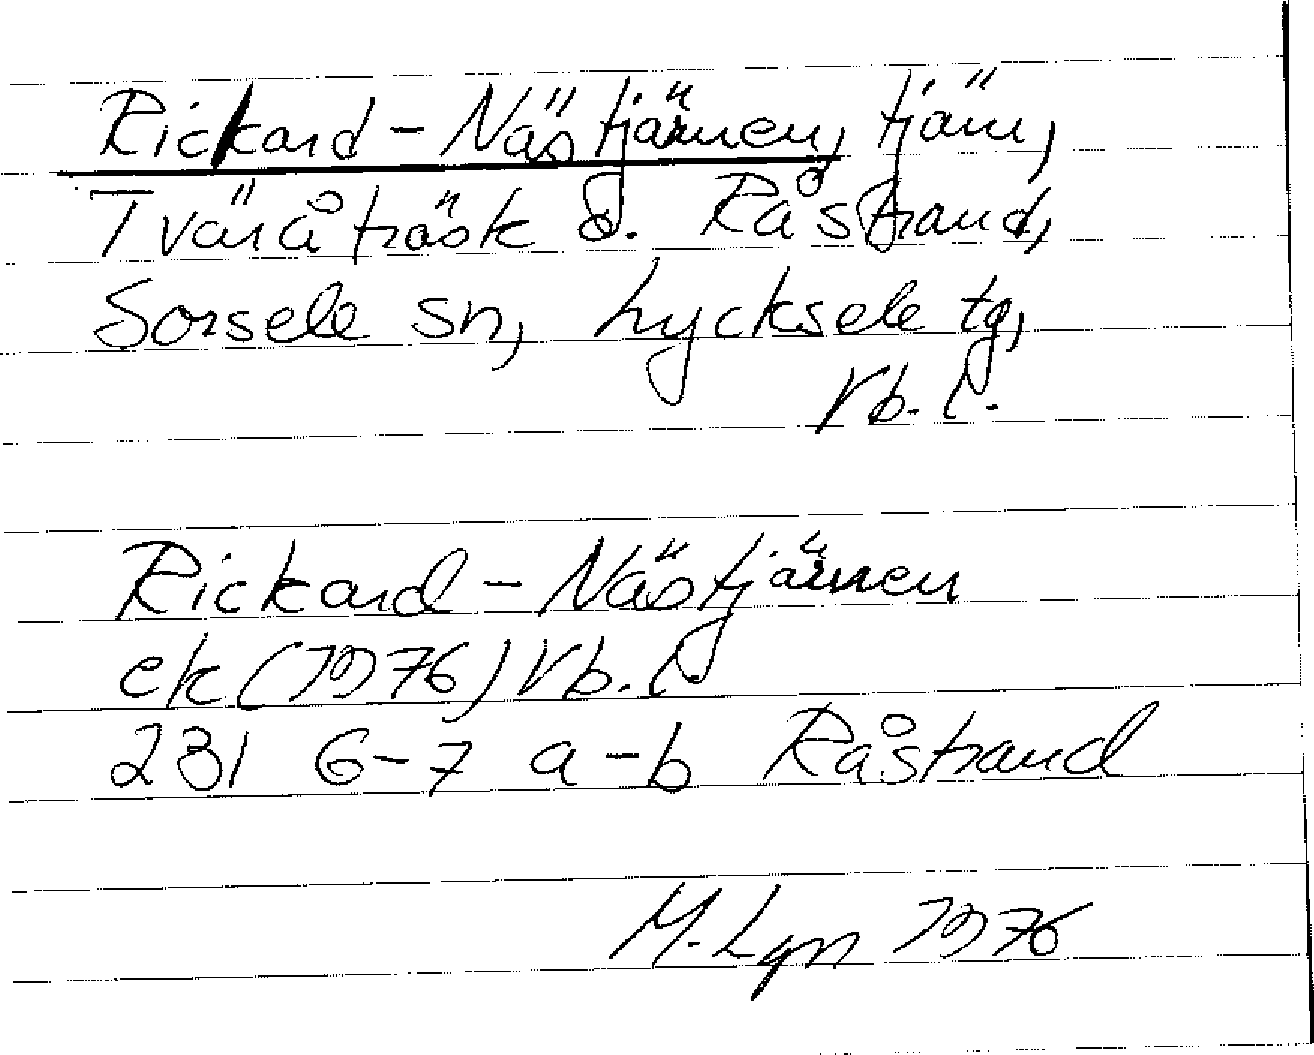 Rickard-Nästjärnen, tjärn,
Tväråträsk o. Råstrand,
Sorsele sn, Lycksele tg,
Vb. l.
Rickard-Nästjärnen
ek (1976) Vb. l.
231 6-7 a-b Råstrand
M. Lgn 1976